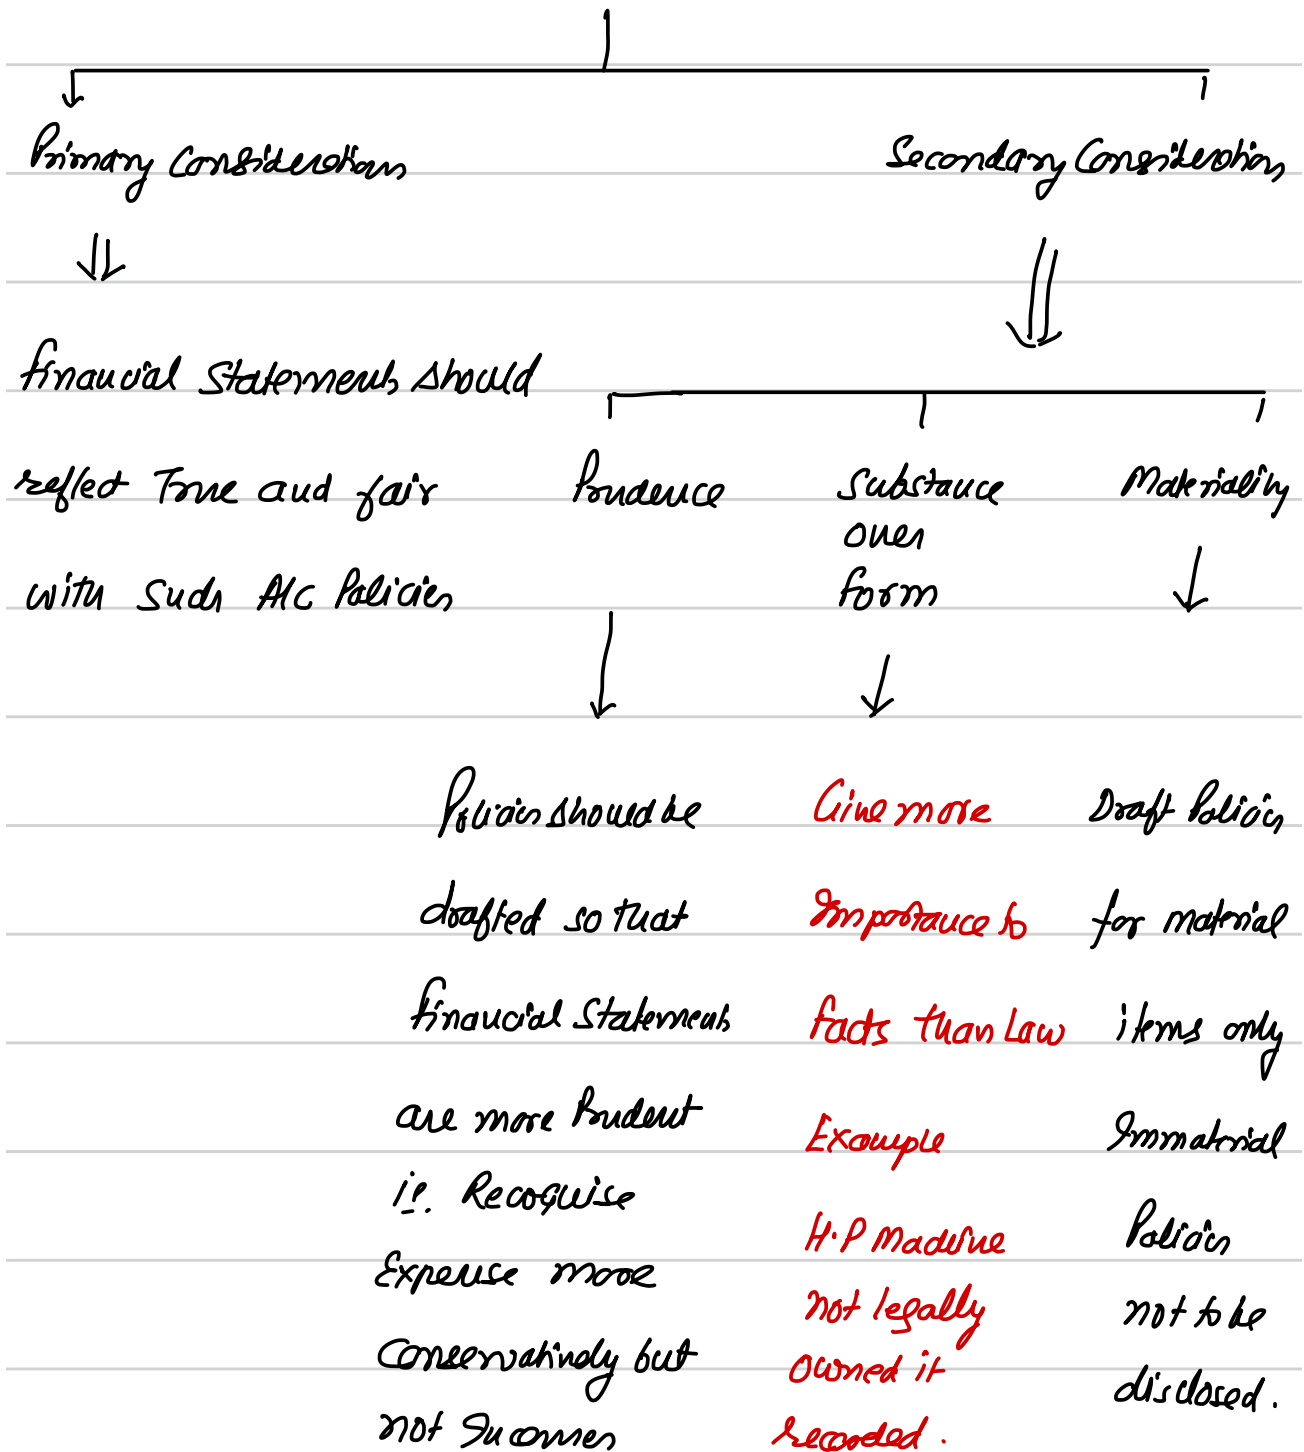 Primary Considerations
Secondary Considerations
Financial Statements should
reflect True and fair
with such A/c Policies
Prudence
Substance
over
form
Materiality
Policies should be
drafted so that
financial Statements
are more Prudent
i.e. Recognise
Expense more
Conservatively but
not Incomes
Give more
Importance to
facts than Law
Example
H.P Machine
not legally
owned it
recorded.
Draft Policies
for material
items only
Immaterial
Policies
not to be
disclosed.